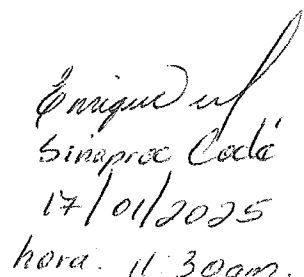 Enrique
Sinaproc Coclé
17/01/2025
hora: 11:30am.